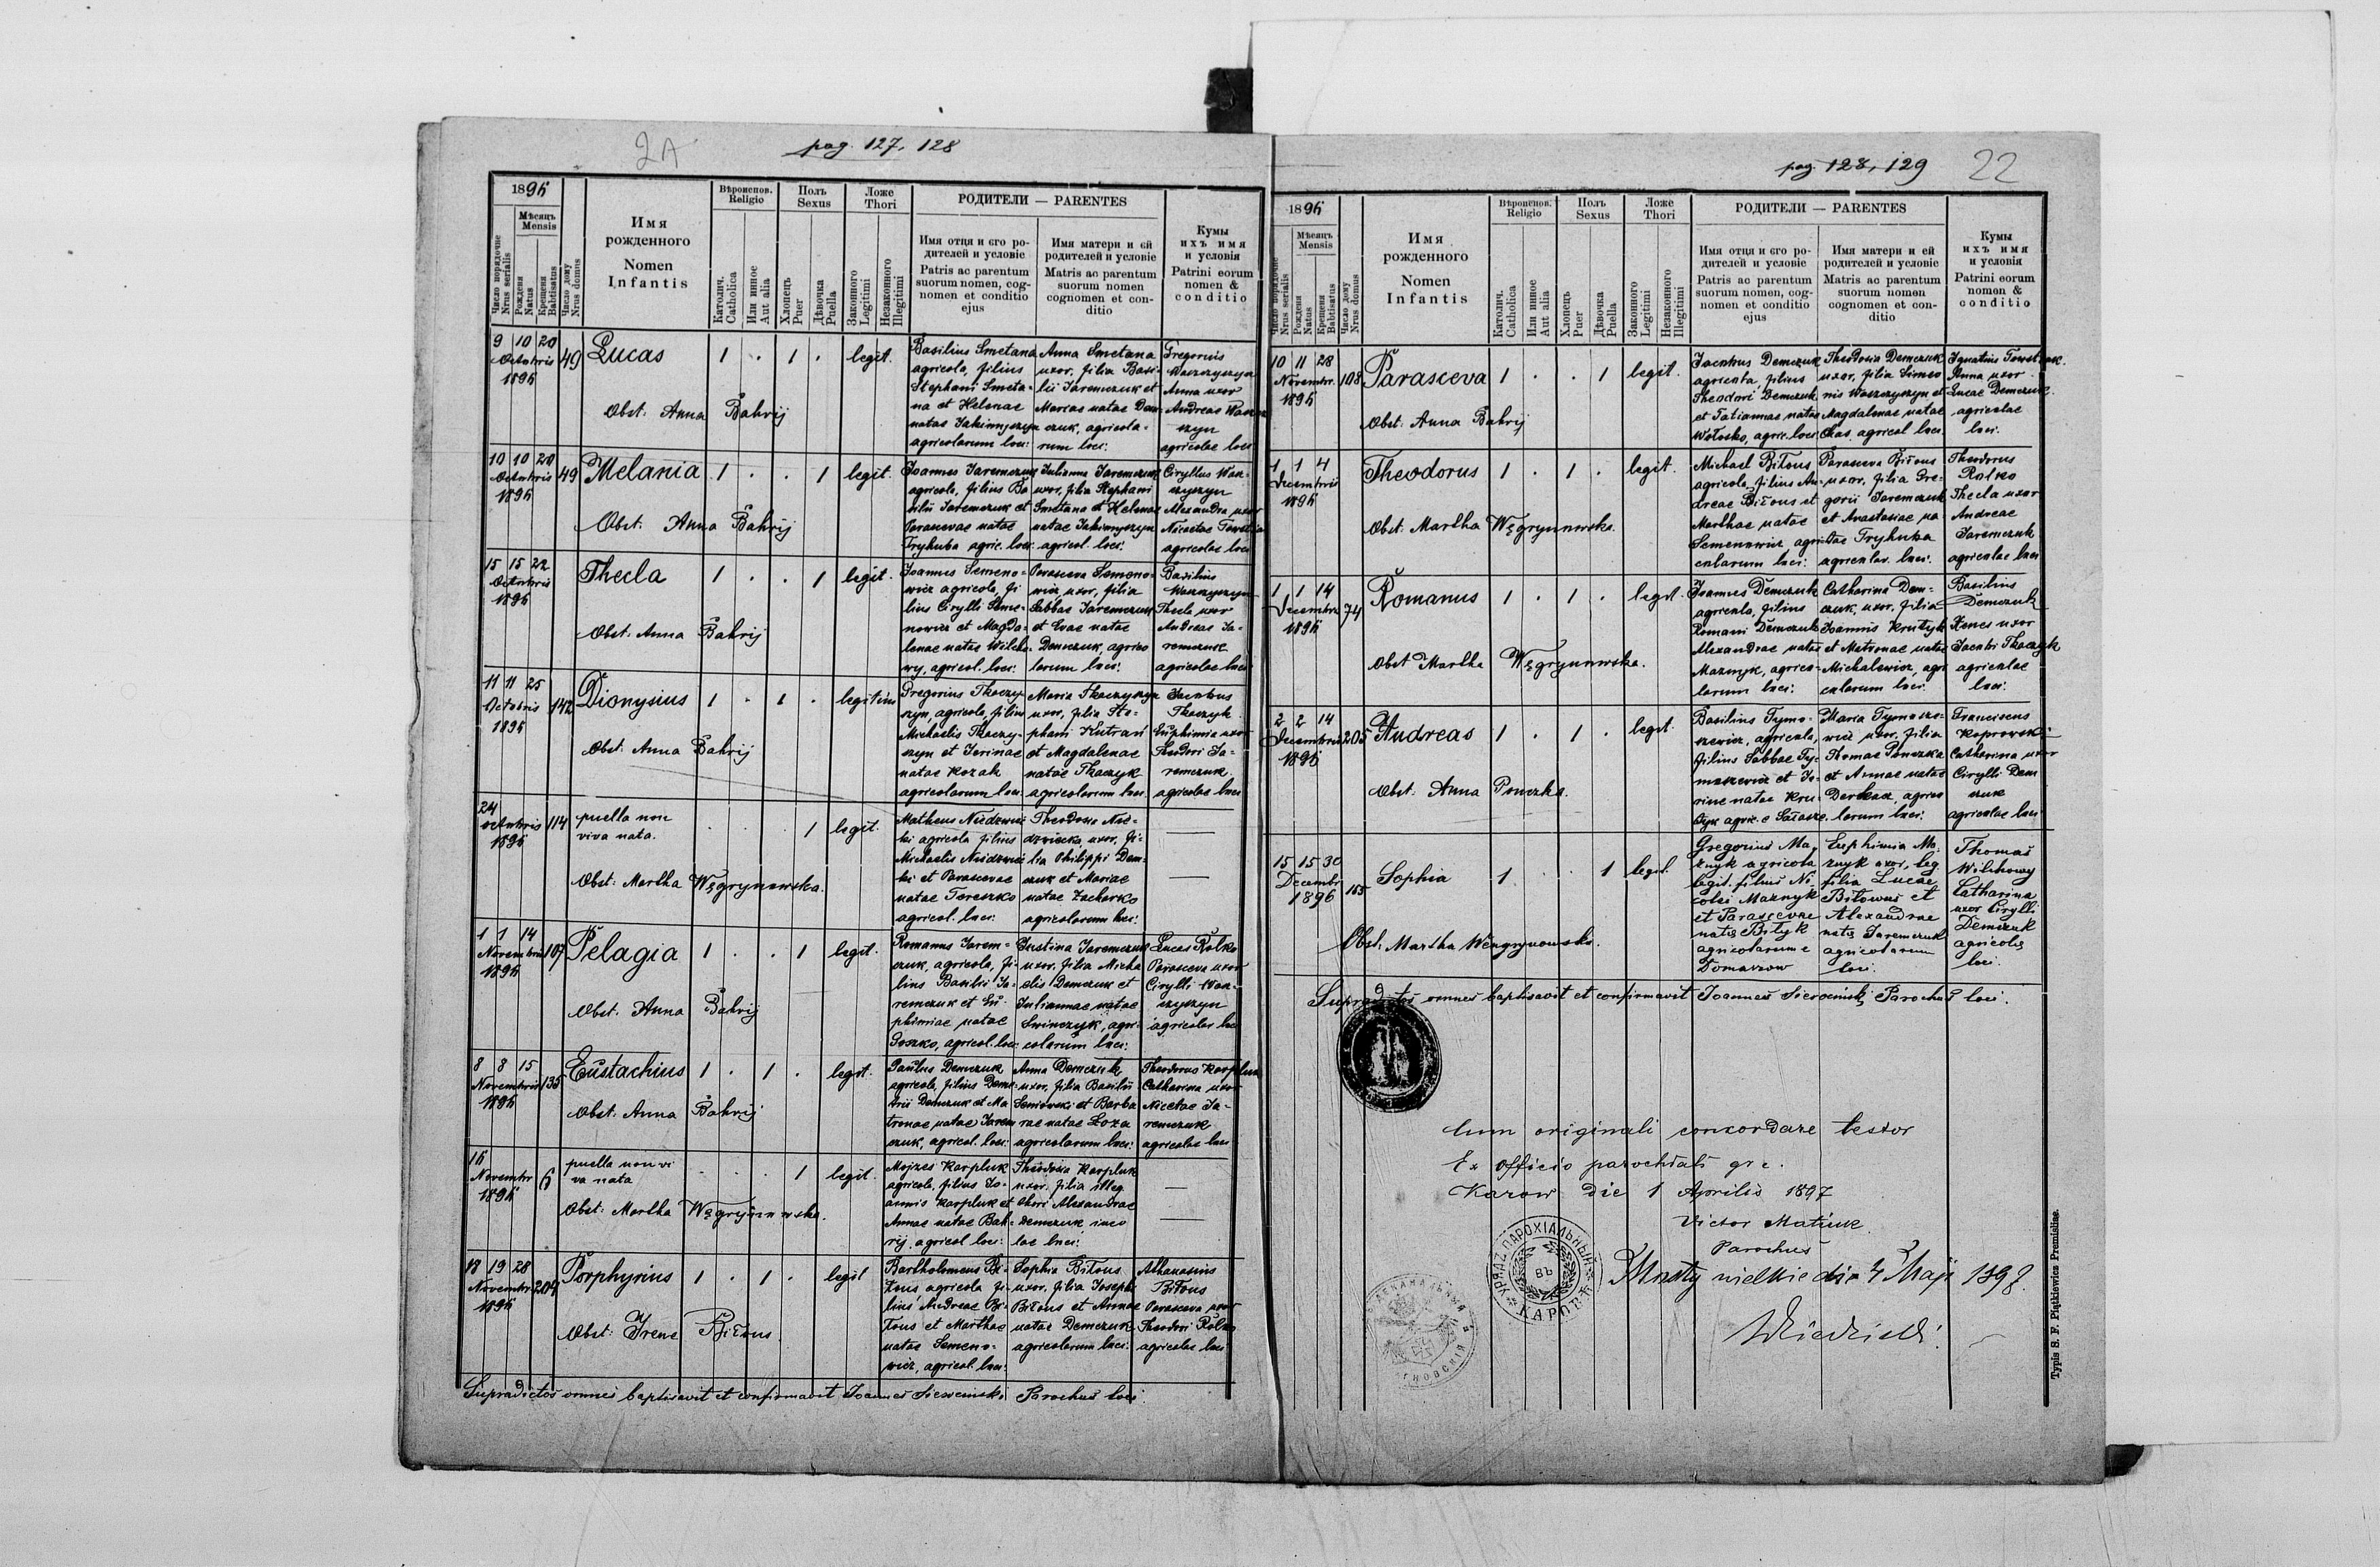 2A
pag. 127, 128
1896
Мѣсяцъ
Mensis
Число порядочне
Nrus serialis
Рожденя
Natus
Крещеня
Babtisatus
Число дому
Nrus domus
Имя
рожденного
Nomen
Infantis
Вѣроиспов.
Religio
Католич.
Catholica
Или инное
Aut alia
Полъ
Sexus
Хлопецъ
Puer
Дѣвочка
Puella
Ложе
Thori
Законного
Legitimi
Незаконного
Illegitimi
РОДИТЕЛИ — PARENTES
Имя отця и єго ро-
дителей и условіє
Patris ac parentum
suorum nomen, cog-
nomen et conditio
ejus
Имя матери и єй
родителей и условіє
Matris ac parentum
suorum nomen
cognomen et con-
ditio
Кумы
ихъ имя
и условія
Patrini eorum
nomen &
conditio
9 10 20
Octobris
1896
49
Lucas
1 . 1 . legit.
Obst: Anna Bahrij
Basilius Smetana
agricola, filius
Stephani Smeta-
na et Helenae
natae Jakimyszyn
agricolarum loci:
Anna Smetana
uxor, filia Basi-
lii Jaremczuk et
Mariae natae Dem-
czuk, agricola-
rum loci:
Gregorius
Waszczyszyn
Anna uxor
Andreae
szyn
agricolae loci
10 10 20
Octobris
1896
49
Melania
1 . . 1 legit.
Obst: Anna Bahrij
Joannes Jaremczuk
agricola, filius Ba
silii Jaremczuk et
Parascevae natae
Tryhuba agric. loci:
Julianna Jaremczuk
uxor, filia Stephani
Smetana et Helenae
natae Jakimyszyn
agricol. loci:
Cyrillus Wasz-
czyszyn
Alexandra uxor
Nicetae
agricolae loci
15 15 22
Octobris
1896
Thecla
1 . . 1 legit.
Obst: Anna Bahrij
Joannes Semeno-
wicz agricola, fi
lius Cirylli Seme-
nowicz et Magda-
lenae natae Wilcho-
wy, agricol. loci:
Parasceva Semeno-
wicz uxor, filia
Sabbae Jaremczuk
et Evae natae
Demczuk, agrico
larum loci:
Basilius
Waszczyszyn
Thecla uxor
Andreae Ja-
remczuk
agricolae loci
11 11 25
Octobris
1896
142
Dionysius
1 . 1 . legitim
Obst: Anna Bahrij
Gregorius Tkaczy-
szyn, agricola, filius
Michaelis Tkaczy-
szyn et Irinae
natae Kozak
agricolarum loci
Maria Tkaczyszyn
uxor, filia Ste-
phani Kutrań
et Magdalenae
natae Tkaczyk
agricolarum loci
Jacobus
Tkaczyk
Euphimia uxor
Theodori Ja-
remczuk
agricolae loci
24
octobris
1896
114
puella non
viva nata.
. . . 1 legit.
Obst: Martha Węgrynowska.
Matheus Niedzwiec
ki agricola filius
Michaelis Niedzwiec
ki et Parascevae
natae Tereszko
agricol. loci:
Theodosia Nie-
dzwiecka uxor, fi-
lia Philippi Dem-
czuk et Mariae
natae Zacharko
agricolarum loci:
1 1 14
Novembris
1896
107
Pelagia
1 . . 1 legit.
Obst: Anna Bahrij
Romanus Jarem-
czuk, agricola, fi-
lius Basilii Ja-
remczuk et Eu-
phimiae natae
Soszko, agricol. loci:
Justina Jaremczuk
uxor, filia Micha
elis Demczuk et
Juliannae natae
Swinczyk, agri-
colarum loci:
Lucas Rotko
Parasceva uxor
Cirylli Wasz-
czyszyn
agricolae loci
8 8 15
Novembris
1896
135
Eustachius
1 . 1 . legit.
Obst: Anna Bahrij
Paulus Demczuk
agricola, filius Deme-
trii Demczuk et Ma
tronae natae Jarem
czuk, agricol. loci:
Anna Demczuk
uxor, filia Basilii
Seniowski et Barba
rae natae Łoza
agricolarum loci:
Theodorus Karpluk
Catharina uxor
Nicetae Ja-
remczuk
agricolae loci
16
Novembr
1896
6
puella non vi
va nata
. . . 1 legit.
Obst: Martha Węgrynowska.
Mojzes Karpluk
agricola, filius Jo-
annis Karpluk et
Annae natae Bah-
rij, agricol loci:
Theodosia Karpluk
uxor, filia illeg
thori Alexandrae
Demczuk inco
lae loci:
19 28
Novembr
1896
204
Porphyrius
1 . 1 . legit
Obst: Irene Biłous.
Bartholomeus Bi-
łous agricola fi-
lius Andreae Bi-
łous et Marthae
natae Semeno-
wicz, agricol. loci:
Sophia Biłous
uxor, filia Josephi
Biłous et Annae
natae Demczuk
agricolarum loci:
Athanasius
Biłous
Parasceva uxor
Theodori Rotko
agricolae loci
Supradictos omnes baptisavit et confirmavit Joannes Sierociński Parochus loci
pag. 128, 129
22
1896
Мѣсяцъ
Mensis
Число порядочне
Nrus serialis
Рожденя
Natus
Крещеня
Babtisatus
Число дому
Nrus domus
Имя
рожденного
Nomen
Infantis
Вѣроиспов.
Religio
Католич.
Catholica
Или инное
Aut alia
Полъ
Sexus
Хлопецъ
Puer
Дѣвочка
Puella
Ложе
Thori
Законного
Legitimi
Незаконного
Illegitimi
РОДИТЕЛИ — PARENTES
Имя отця и єго ро-
дителей и условіє
Patris ac parentum
suorum nomen, cog-
nomen et conditio
ejus
Имя матери и ей
родителей и условіє
Matris ac parentum
suorum nomen
cognomen et con-
ditio
Кумы
ихъ имя
и условія
Patrini eorum
nomen &
conditio
10 11 28
Novembr.
1896
108
Parasceva
1 . . 1 legit.
Obst: Anna Bahrij
Jacobus Demczuk
agricola, filius
Theodori Demczuk
et Tatiannae natae
Wołosko, agric. loci
Theodosia Demczuk
uxor, filia Simeo
nis Waszczyszyn et
Magdalenae natae
agricol loci.
Ignatius
Anna uxor
Lucae Demczuk
agricolae
loci.
1 1 4
Decembris
1896
Theodorus
1 . 1 . legit.
Obst: Martha Węgrynowska.
Michael Biłous
agricola, filius An-
dreae Biłous et
Marthae natae
Semenowicz agri
colarum loci:
Parasceva Biłous
uxor, filia Gre-
gorii Jaremczuk
et Anastasiae na-
tae Tryhuba
agricolar. loci:
Theodorus
Rotko
Thecla uxor
Andreae
Jaremczuk
agricolae loci
1 1 14
Decembris
1896
74
Romanus
1 . 1 . legit.
Obst Martha Węgrynowska.
Joannes Demczuk
agricola, filius
Romani Demczuk
Alexandrae natae
Maznyk, agrico-
larum loci:
Catharina Dem-
czuk, uxor, filia
Joannis Krutyk
et Matronae natae
Michalewicz, agri
colarum loci.
Basilius
Demczuk
Xenia uxor
Jacobi Tkaczyk
agricolae
loci.
2 2 14
Decembris
1896
205
Andreas
1 . 1 . legit.
Obst: Anna Ponczka.
Basilius Tymo-
szewicz, agricola,
filius Sabbae Ty-
moszewicz et Ja-
rinae natae Kru-
tyk agric. e
Maria Tymosze-
wicz uxor, filia
Thomae Ponczka
et Annae natae
Derkacz, agrico
larum loci:
Franciscus
Koprowski
Catharina uxor
Cirylli Dem
czuk
agricolae loci
15 15 30
Decembr
1896
165
Sophia
1 . . 1 legit.
Obst: Martha Wengrynowska.
Gregorius Ma-
znyk agricola
legit. filius Ni-
colai Maznyk
et Parascevae
natae Bityk
agricolarum e
Domaszow
Euphimia Ma-
znyk uxor, leg
filia Lucae
Biłowus et
Alexandrae
natae Jaremczuk
agricolarum
loci.
Thomas
Wilchowy
Catharina
uxor Cirylli
Demczuk
agricolae
loci.
Supradictos omnes baptisavit et confirmavit Joannes Sierociński Parochus loci.
Cum originali concordare testor
Ex officio parochiali gr. c.
Karow die 1 Aprilis 1897
Victor Matiuk
Parochus
УРЯДЪ ПАРОХІАЛЬНЫЙ
ВЪ
КАРОВѢ
Mosty wielkie die 4 Maji 1897
Typis S. F. Piątkiewicz Premisliae.